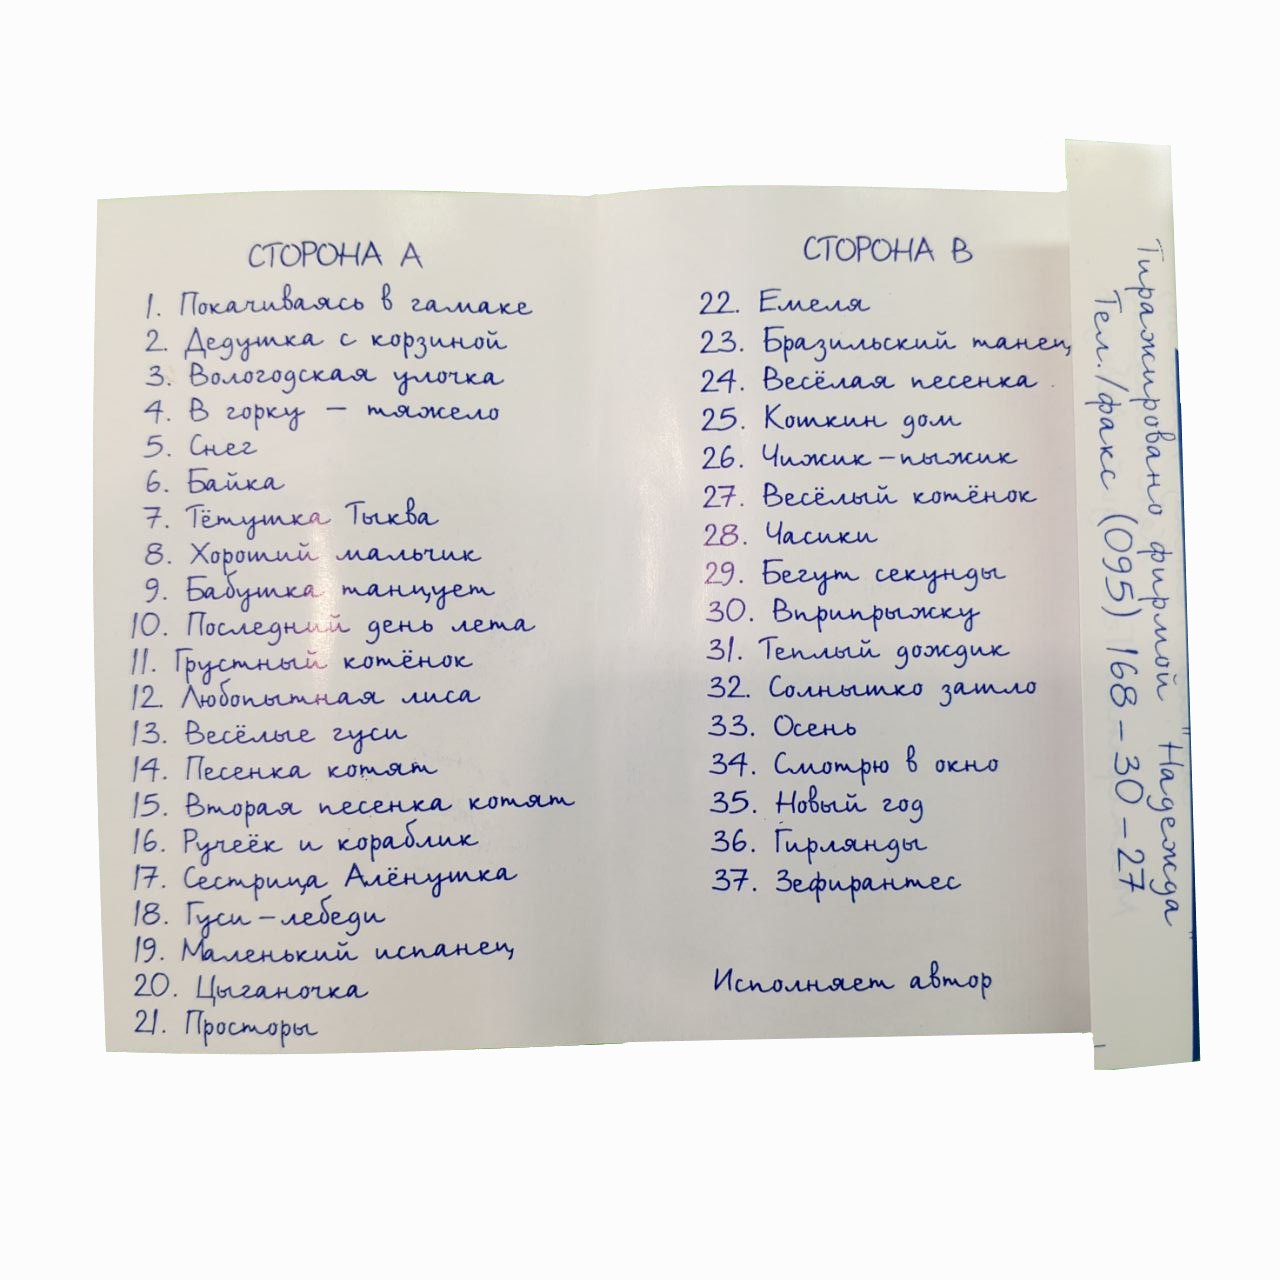 СТОРОНА А
1. Покачиваясь в гамаке
2. Дедушка с корзиной
3. Вологодская улочка
4. В горку – тяжело
5. Снег
6. Байка
7. Тётушка Тыква
8. Хороший мальчик
9. Бабушка танцует
10. Последний день лета
11. Грустный котёнок
12. Любопытная лиса
13. Весёлые гуси
14. Песенка котят
15. Вторая песенка котят
16. Ручеёк и кораблик
17. Сестрица Алёнушка
18. Гуси-лебеди
19. Маленький испанец
20. Цыганочка
21. Просторы
СТОРОНА В
22. Емеля
23. Бразильский танец
24. Весёлая песенка
25. Кошкин дом
26. Чижик-пыжик
27. Весёлый котёнок
28. Часики
29. Бегут секунды
30. Вприпрыжку
31. Теплый дождик
32. Солнышко зашло
33. Осень
34. Смотрю в окно
35. Новый год
36. Гирлянды
37. Зефирантес
Исполняет автор
Тиражировано фирмой "Надежда"
Тел./факс (095) 168-30-27